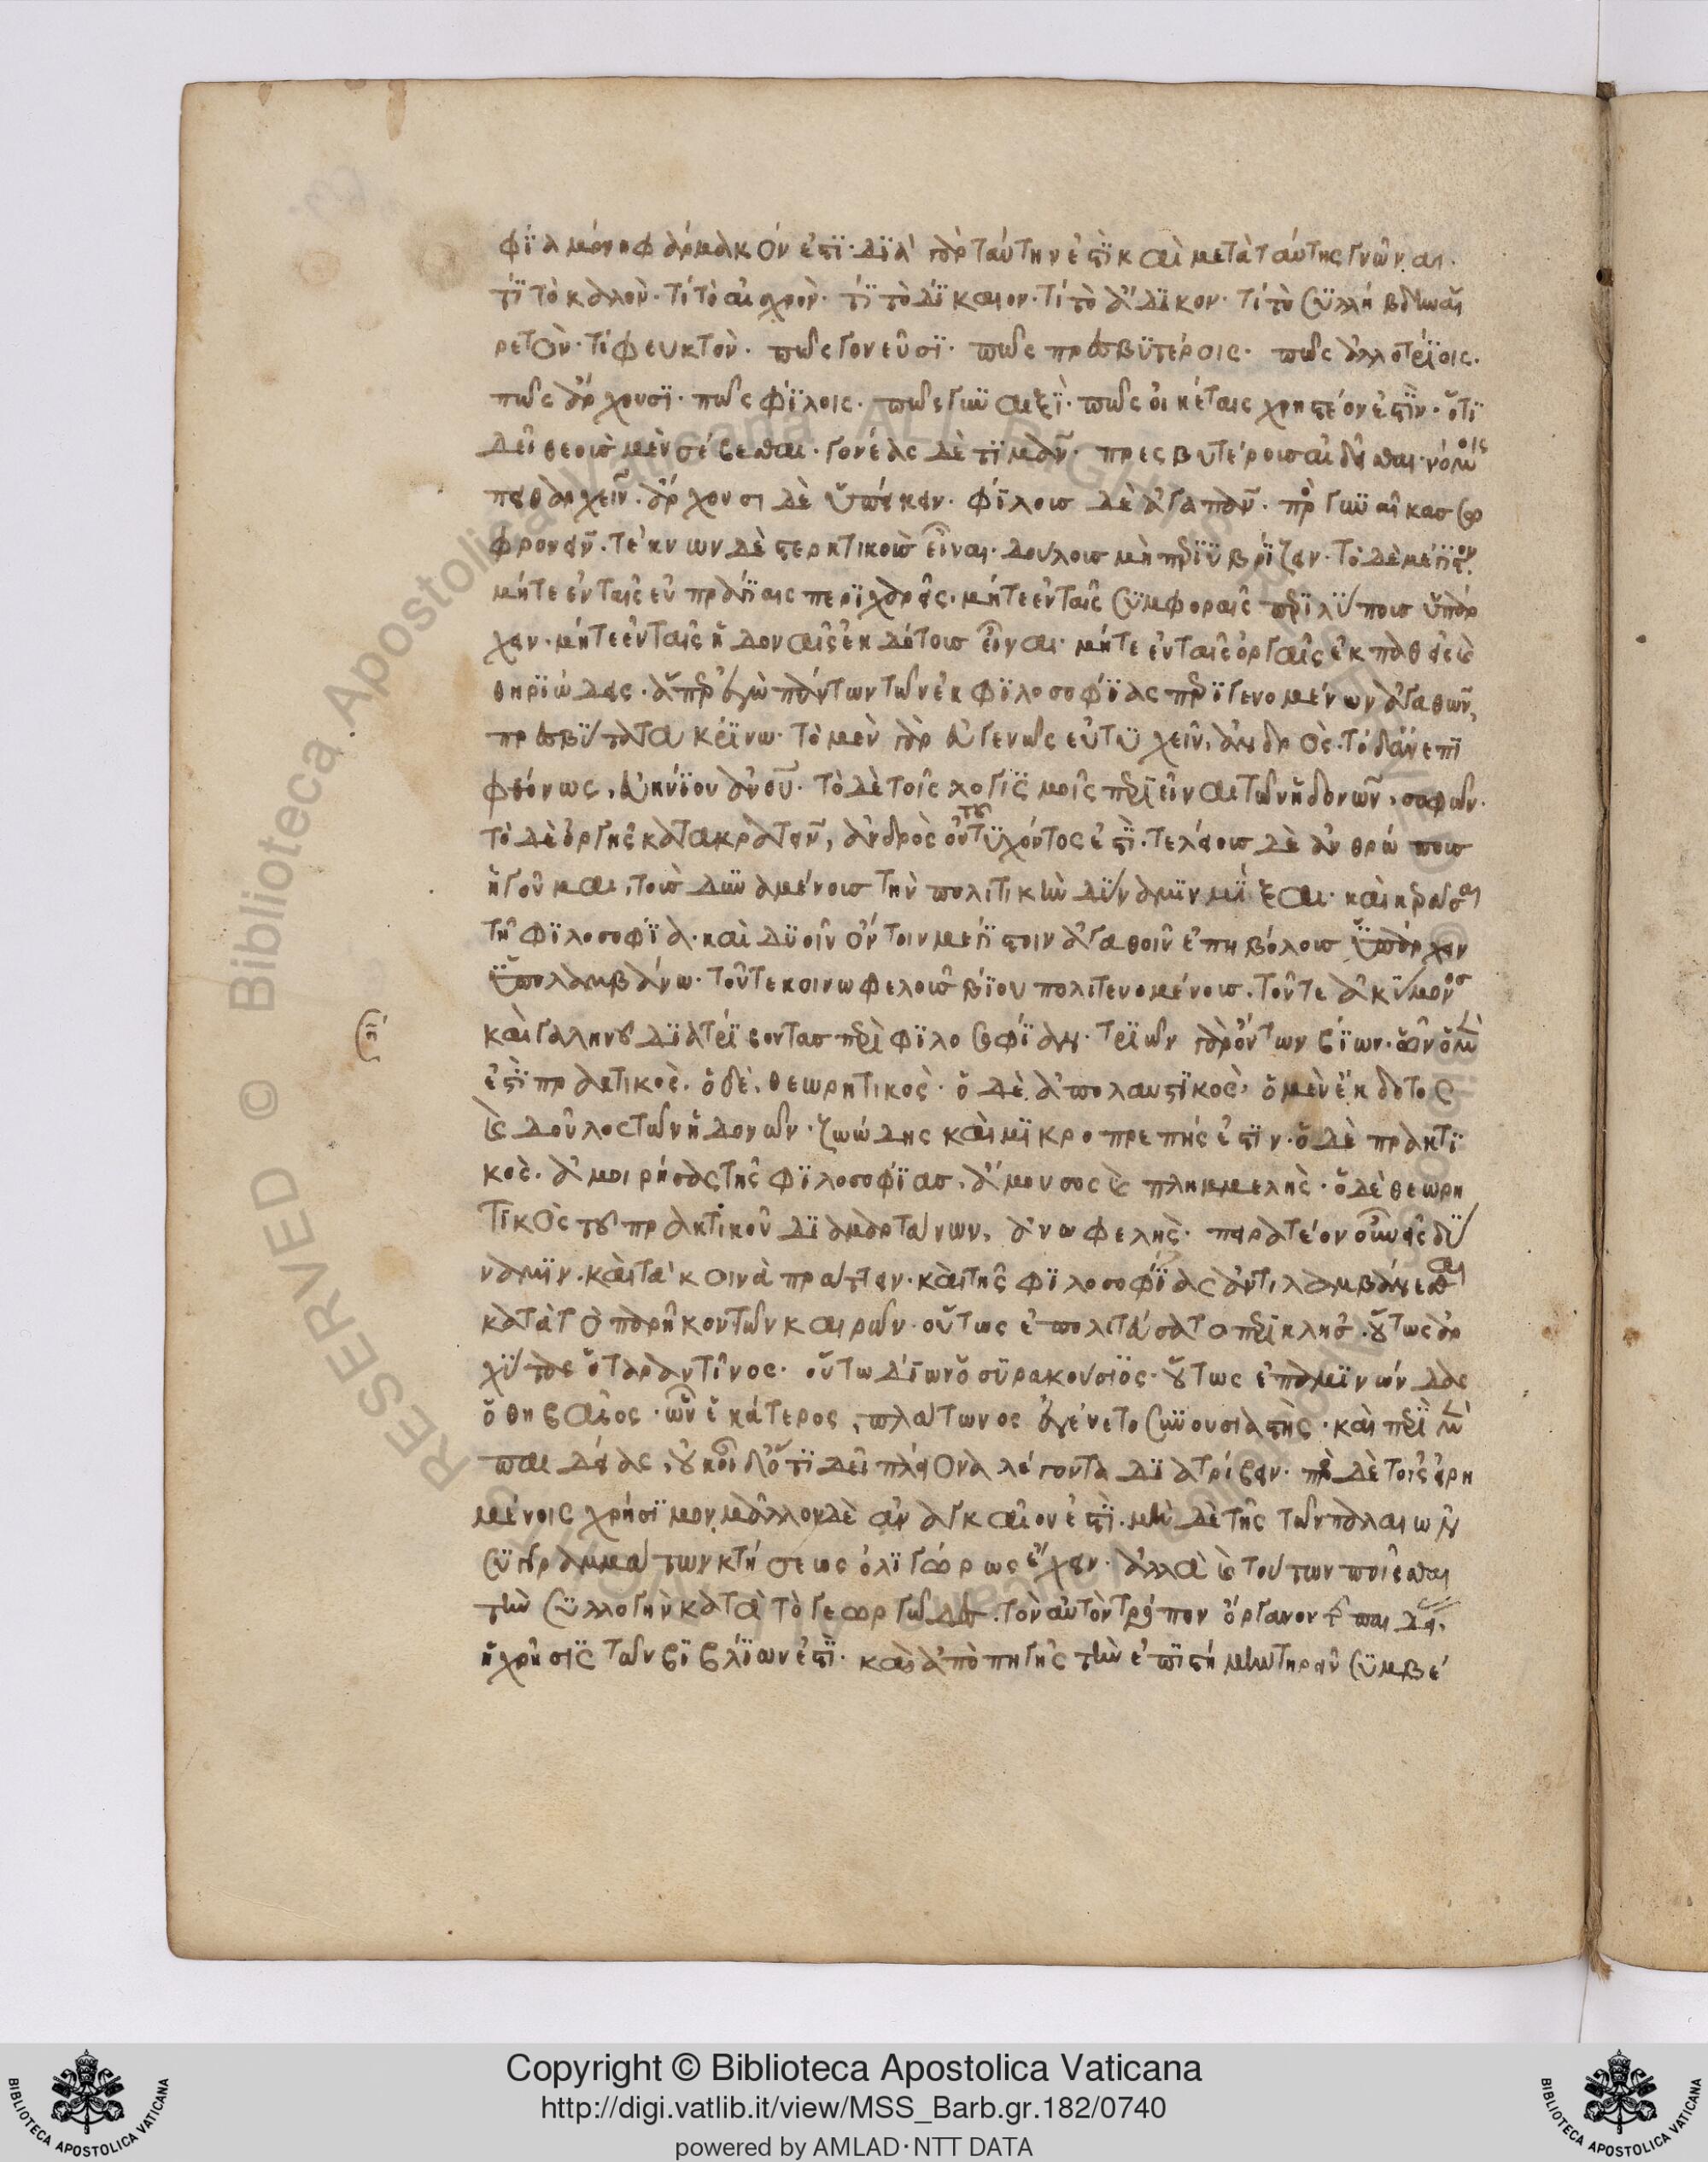 φία μόνη φάρμακόν ἐστι· διὰ γὰρ ταύτην ἐστὶ καὶ μετὰ ταύτης γνῶναι·
τί τὸ καλὸν· τί τὸ αἰσχρὸν· τί τὸ δίκαιον· τί τὸ ἄδικον· τί τὸ συλλήβδην αἱ
ρετὸν· τί φευκτὸν· πῶς γονεῦσι· πῶς πρεσβυτέροις· πῶς ἀλλοτρίοις·
πῶς ἄρχουσι· πῶς φίλοις· πῶς γυναιξὶ· πῶς οἰκέταις χρηστέον ἐστὶν· ὅτι
δεῖ θεοὺς μὲν σέβεσθαι· γονέας δὲ τιμᾶν· πρεσβυτέρους αἰδεῖσθαι· νόμοις
πειθαρχεῖν· ἄρχουσι δὲ ὑπείκειν· φίλους δὲ ἀγαπᾶν· πρὸς γυναῖκας σω
φρονεῖν· τέκνων δὲ στερκτικοὺς εἶναι· δούλους μὴ περιυβρίζειν· τὸ δὲ μέγιστον
μήτε ἐν ταῖς εὐπραγίαις περιχαρεῖς· μήτε ἐν ταῖς συμφοραῖς περιλύπους ὑπάρ
χειν· μήτε ἐν ταῖς ἡδοναῖς ἐκδότους εἶναι· μήτε ἐν ταῖς ὀργαῖς ἐκπαθεῖς καὶ
θηριώδεις· ἅπερ ἐγὼ πάντων τῶν ἐκ φιλοσοφίας περιγενομένων ἀγαθῶν,
πρεσβύτατα κρίνω· τὸ μὲν γὰρ εὐγενῶς εὐτυχεῖν, ἀνδρὸς· τὸ δ' ἀνεπι
φθόνως, εὐηνίου ἀνθρώπου· τὸ δὲ τοῖς λογισμοῖς περιεῖναι τῶν ἡδονῶν, σοφῶν·
τὸ δὲ ὀργῆς κατακρατεῖν, ἀνδρὸς οὐ τοῦ τυχόντος ἐστὶ· τελείους δὲ ἀνθρώπους
ἡγοῦμαι, τοὺς δυναμένους τὴν πολιτικὴν δύναμιν μίξαι· καὶ κεράσαι
τῇ φιλοσοφίᾳ· καὶ δυοῖν ὄντοιν μεγίστοιν ἀγαθοῖν ἐπηβόλους ὑπάρχειν
ὑπολαμβάνω· τοῦ τε κοινωφελοῦς βίου πολιτευομένους· τοῦ τε ἀκύμονος
καὶ γαληνοῦ διατρίβοντας περὶ φιλοσοφίαν· τριῶν γὰρ ὄντων βίων· ὧν ὁ μὲν
ἐστὶ πρακτικὸς· ὁ δὲ, θεωρητικὸς· ὁ δὲ ἀπολαυστικὸς· ὁ μὲν ἔκδοτος
καὶ δοῦλος τῶν ἡδονῶν· ζωώδης καὶ μικροπρεπής ἐστιν· ὁ δὲ πρακτι
κὸς· ἀμοιρήσας τῆς φιλοσοφίας, ἄμουσος καὶ πλημμελὴς· ὁ δὲ θεωρη
τικὸς τοῦ πρακτικοῦ διαμαρτάνων, ἀνωφελὴς· πειρατέον οὖν εἰς δύ
ναμιν· καὶ τὰ κοινὰ πράττειν· καὶ τῆς φιλοσοφίας ἀντιλαμβάνεσθαι
κατὰ τὸ παρῆκον τῶν καιρῶν· οὕτως ἐπολιτεύσατο περικλῆς· οὕτως ἀρ
χύτας ὁ ταραντῖνος· οὕτω δίων ὁ συρακούσιος· οὕτως ἐπαμινώνδας
ὁ θηβαῖος· ὧν ἑκάτερος, πλάτωνος ἐγένετο συνουσιαστὴς· καὶ περὶ μὲν
παιδείας, οὐκ οἶδ' ὅτι δεῖ πλείονα λέγοντα διατρίβειν· πρὸς δὲ τοῖς εἰρη
μένοις χρήσιμον μᾶλλον δὲ ἀναγκαῖόν ἐστι· μηδὲ τῆς τῶν παλαιῶν
συγγραμμάτων κτήσεως ὀλιγώρως ἔχειν· ἀλλὰ καὶ τούτων ποιεῖσθαι
τὴν συλλογὴν κατὰ τὸ γεωργῶδες· τὸν αὐτὸν τρόπον ὄργανον τῆς παιδείας
ἡ χρῆσις τῶν βιβλίων ἐστὶ· καὶ ἀπὸ πηγῆς τὴν ἐπιστήμην τηρεῖν συμβέ
Copyright © Biblioteca Apostolica Vaticana
http://digi.vatlib.it/view/MSS_Barb.gr.182/0740
powered by AMLAD·NTT DATA